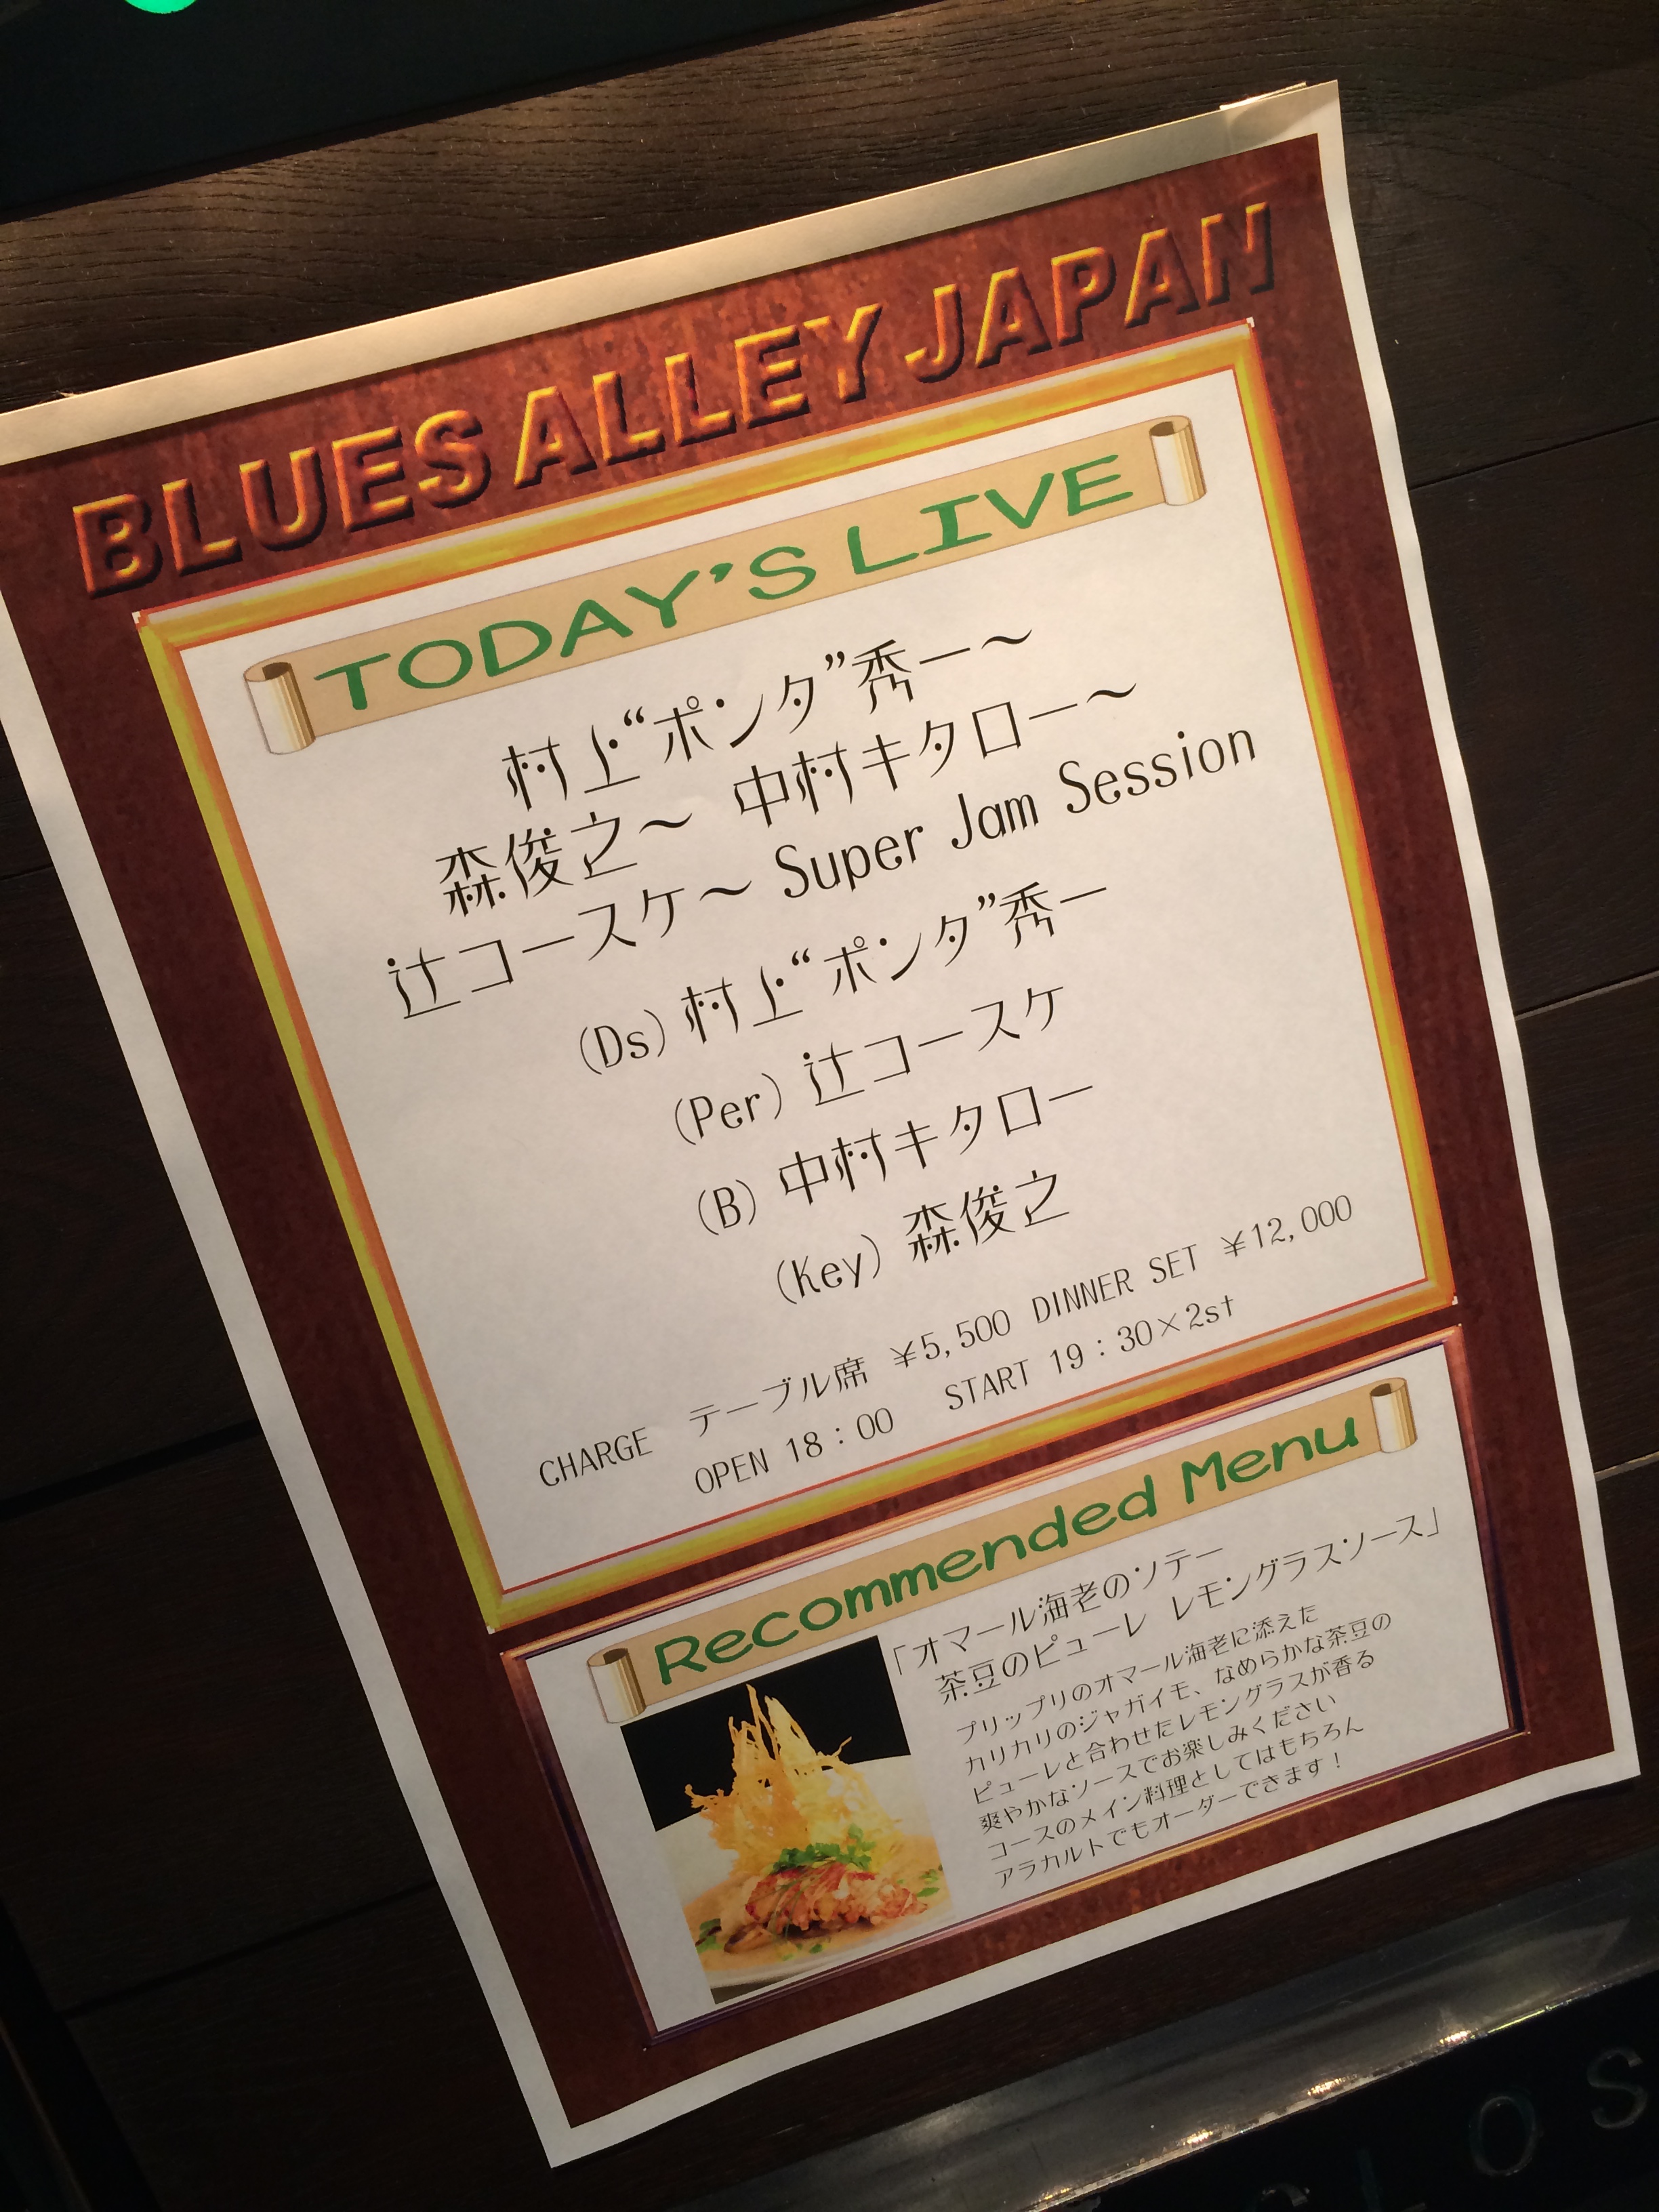 BLUES ALLEY JAPAN
TODAY'S LIVE
村上“ポンタ”秀一～
森俊之～ 中村キタロー～
辻コースケ～ Super Jam Session
(Ds) 村上“ポンタ”秀一
(Per) 辻コースケ
(B) 中村キタロー
(Key) 森俊之
CHARGE テーブル席 ¥5,500 DINNER SET ¥12,000
OPEN 18：00 START 19：30×2st
Recommended Menu
「オマール海老のソテー
茶豆のピューレ レモングラスソース」
プリップリのオマール海老に添えた
カリカリのジャガイモ、なめらかな茶豆の
ピューレと合わせたレモングラスが香る
爽やかなソースでお楽しみください
コースのメイン料理としてはもちろん
アラカルトでもオーダーできます！